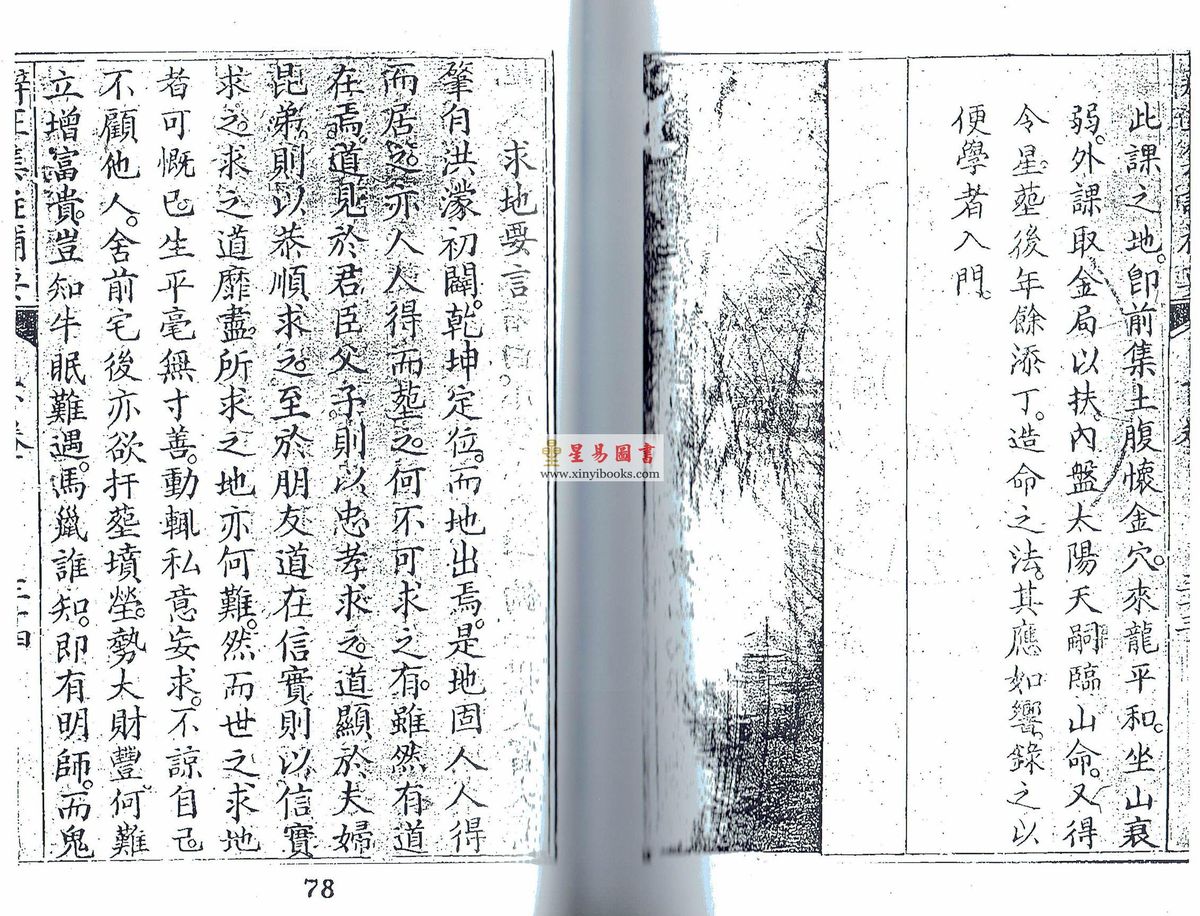 此課之地。即前集土腹懷金穴。來龍平和。坐山衰
弱。外課取金局以扶。內盤太陽天嗣臨山命。又得
令星。塟後年餘添丁。造命之法。其應如響。錄之以
便學者入門。
求地要言
肇自洪濛初闢。乾坤定位。而地出焉。是地固人人得
而居之。亦人人得而塟之。何不可求之有。雖然有道
在焉。道見於君臣父子。則以忠孝求之。道顯於夫婦
昆弟。則以恭順求之。至於朋友道在信實。則以信實
求之。求之之道靡盡。所求之地亦何難。然而世之求地
者可慨已。生平毫無寸善。動輒私意妄求。不諒自己
不顧他人。舍前宅後亦欲扦塟墳塋。勢大財豐何難
立增富貴。豈知牛眠難遇。馬鬣誰知。即有明師。而鬼
三十四
78
星易圖書
www.xinyibooks.com